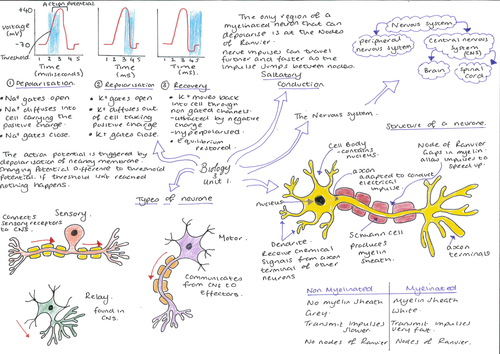 Action Potential
+40
voltage
(mV)
-70
Threshold
1 2 3 4 5
Time
(miliseconds)
1 2 3 4 5
Time
(ms)
1 2 3 4 5
Time
(ms)
① Depolarisation.
• Na⁺ gates open
• Na⁺ diffuses into
cell carrying the
positive charge
• Na⁺ gates close.
② Repolarisation
• K⁺ gates open
• K⁺ diffuses out
of cell taking
positive charge
• K⁺ gates close.
③ Recovery
• K⁺ moves back
into cell through
non gated channels.
- attracted by negative
charge
- hyperpolarised.
• Equilibrium
restored.
The action potential is triggered by
depolarisation of nearby membrane.
Bringing potential difference to threshold
potential. if threshold isn't reached
nothing happens.
The only region of a
myelinated neuron that can
depolarise is at the Nodes
of Ranvier.
nerve impulses can travel
further and faster as the
impulse jumps between nodes.
Saltatory
Conduction
Nervous system
Peripheral
nervous system
Central nervous
system
(CNS)
Brain
Spinal
Cord.
The Nervous system.
Biology
Unit 1.
Structure of a neurone.
Cell Body
- contains
nucleus.
axon
adapted to conduct
electrical
impulse.
Node of Ranvier
Gaps in myelin.
allow impulses to
speed up.
nucleus
Dendrite
Receive chemical
signals from axon
terminal of other
neurons
Schwann cell
produces
myelin
sheath.
axon
terminals
Types of neurone
Sensory.
Connects
sensory receptors
to CNS.
Motor.
Communicates
from CNS to
effectors.
Relay.
found in
CNS.
Non Myelinated Myelinated
No myelin sheath Myelin sheath
Grey. White.
Transmit impulses Transmit impulses
slower. very fast.
No nodes of Ranvier Nodes of Ranvier.